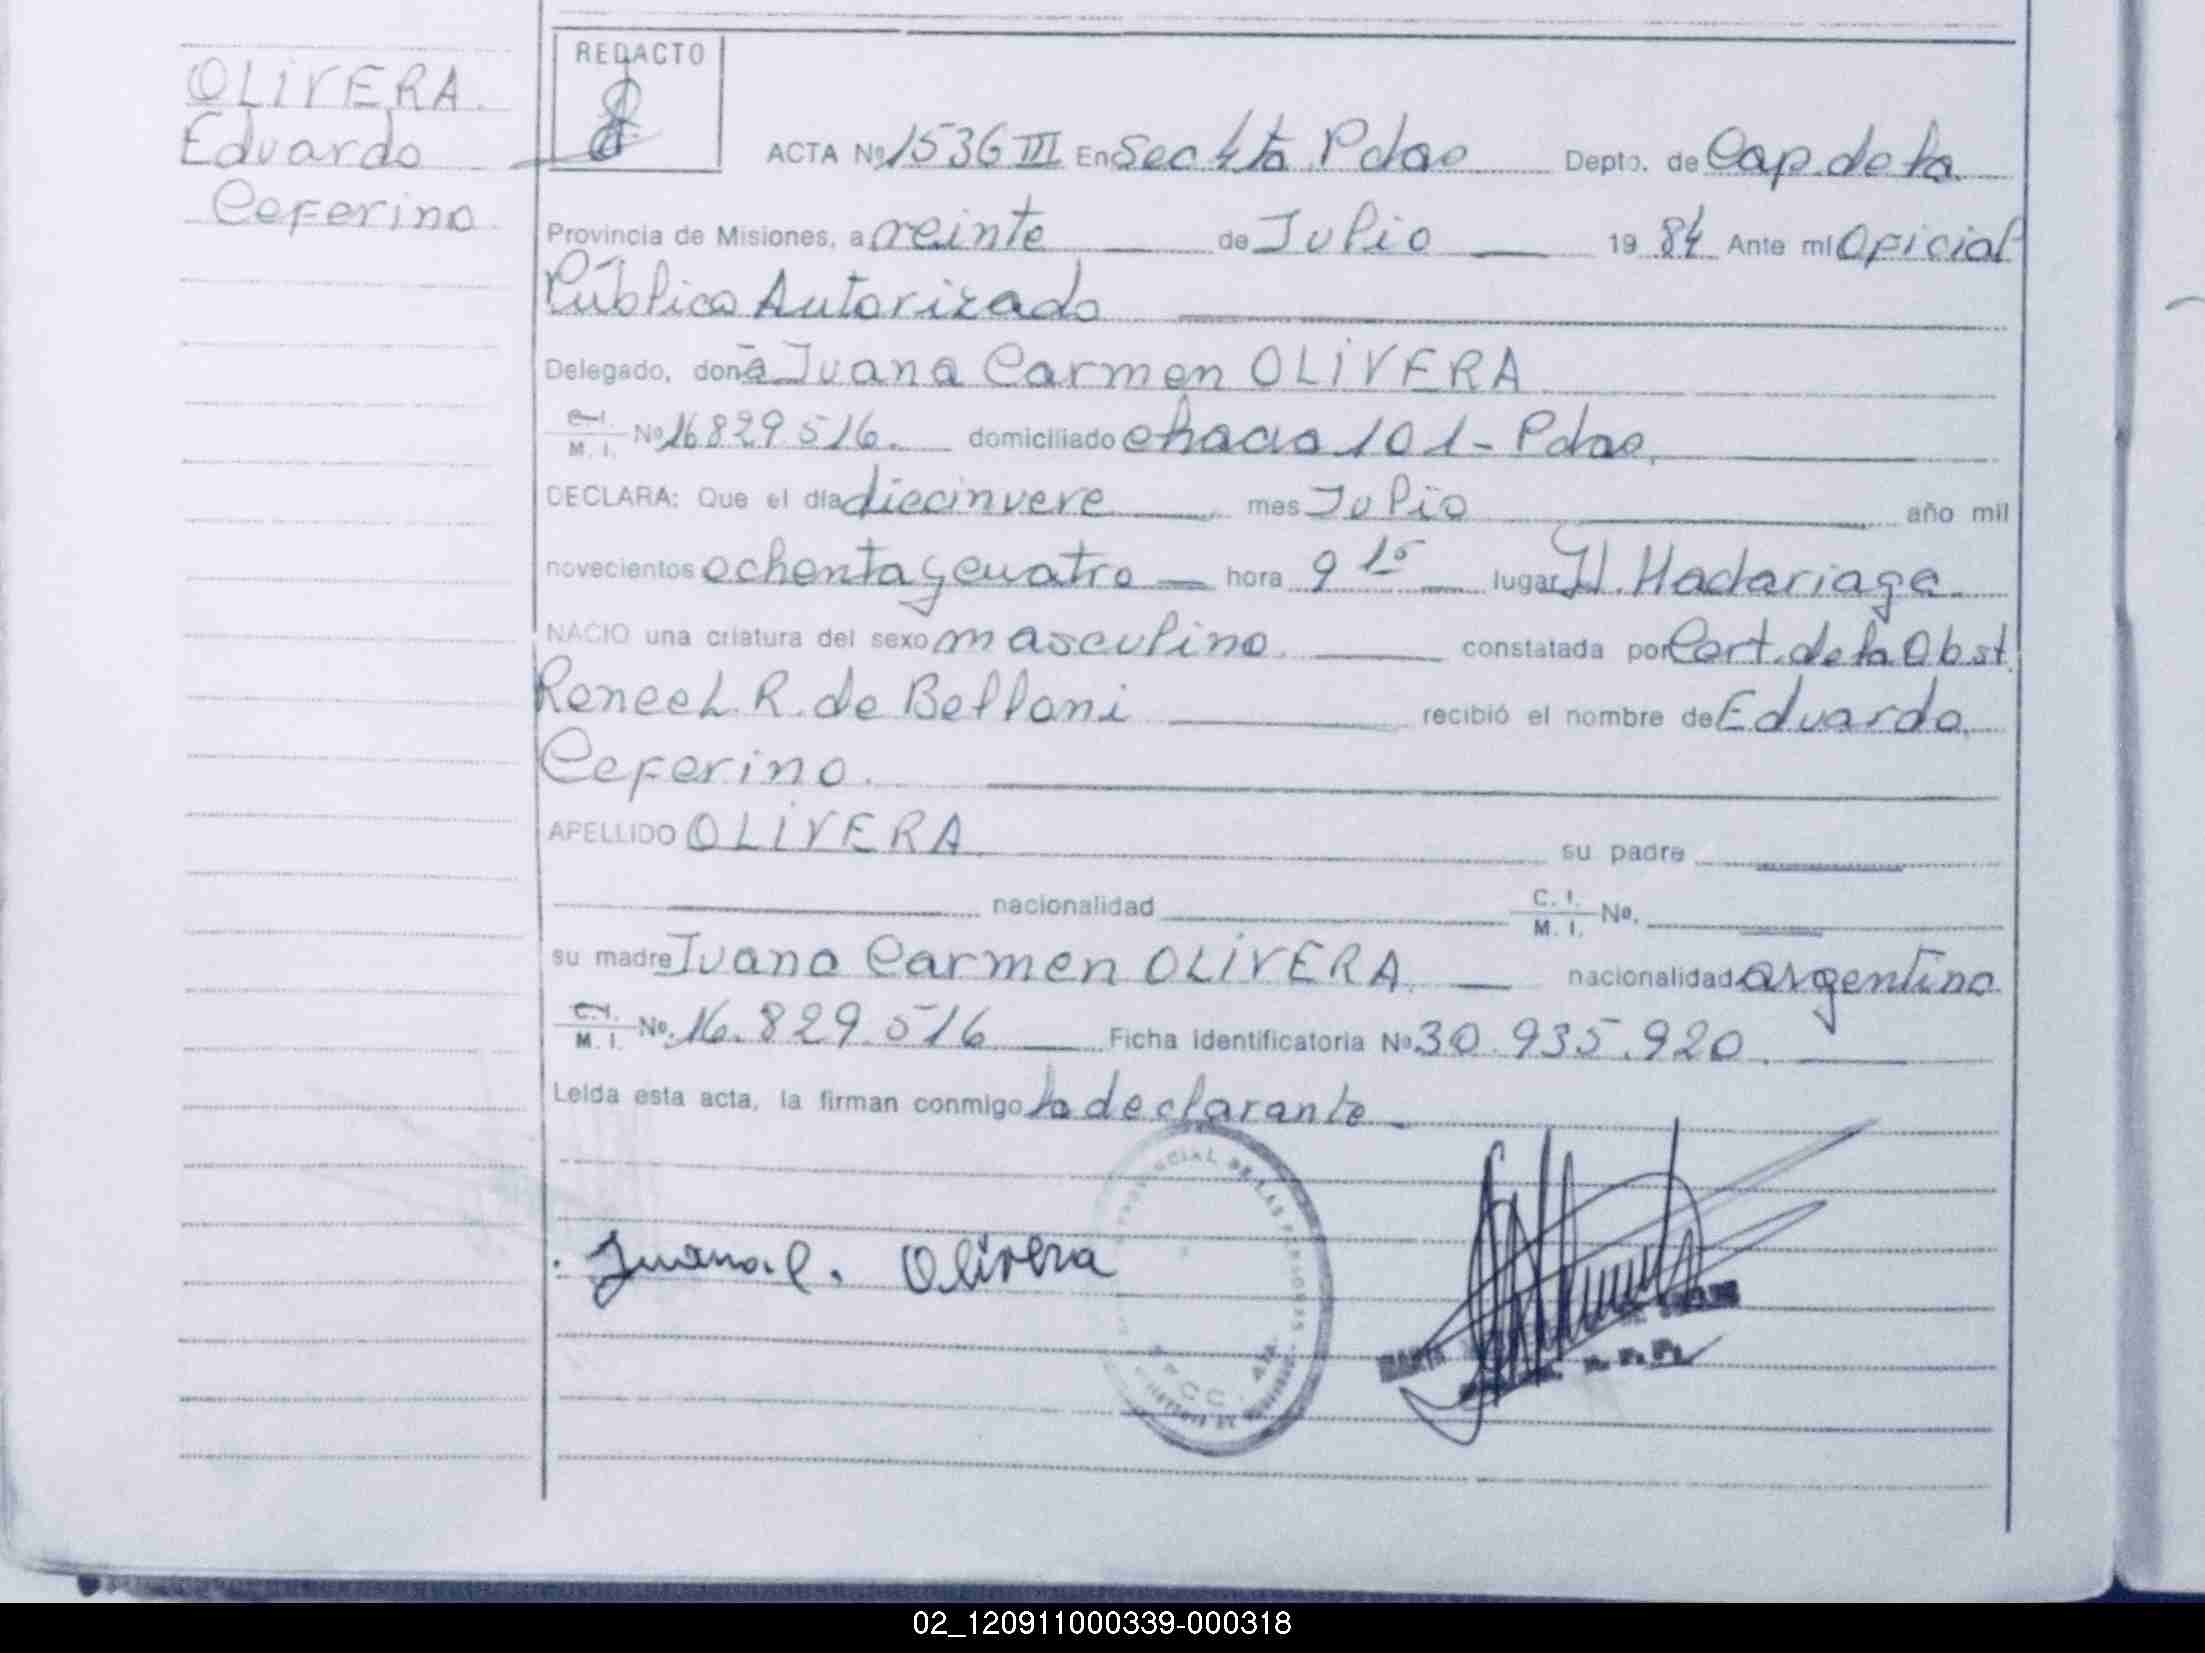 OLIVERA.
Eduardo
Ceferino
REDACTO
ACTA Nº 1536 III En Sec 4ta Pdas Depto. de Cap. de la
Provincia de Misiones, a veinte de Julio 19 84 Ante mí Oficial
Público Autorizado
Delegado, doña Juana Carmen OLIVERA
C. I.
M. I. Nº 16829516. domiciliado chacra 101 - Pdas.
DECLARA: Que el día diecinueve mes Julio año mil
novecientos ochenta y cuatro hora 9 15 lugar H. Madariaga
NACIO una criatura del sexo masculino constatada por Cert. de la Obst.
Renee L. R. de Belloni recibió el nombre de Eduardo
Ceferino.
APELLIDO OLIVERA su padre
nacionalidad C. I.
M. I. Nº.
su madre Juana Carmen OLIVERA nacionalidad argentina
C. I.
M. I. Nº. 16.829.516 Ficha identificatoria Nº 30.935.920.
Leída esta acta, la firman conmigo la declarante
PROVINCIAL DE LAS PERSONAS
Juana C. Olivera
02_120911000339-000318